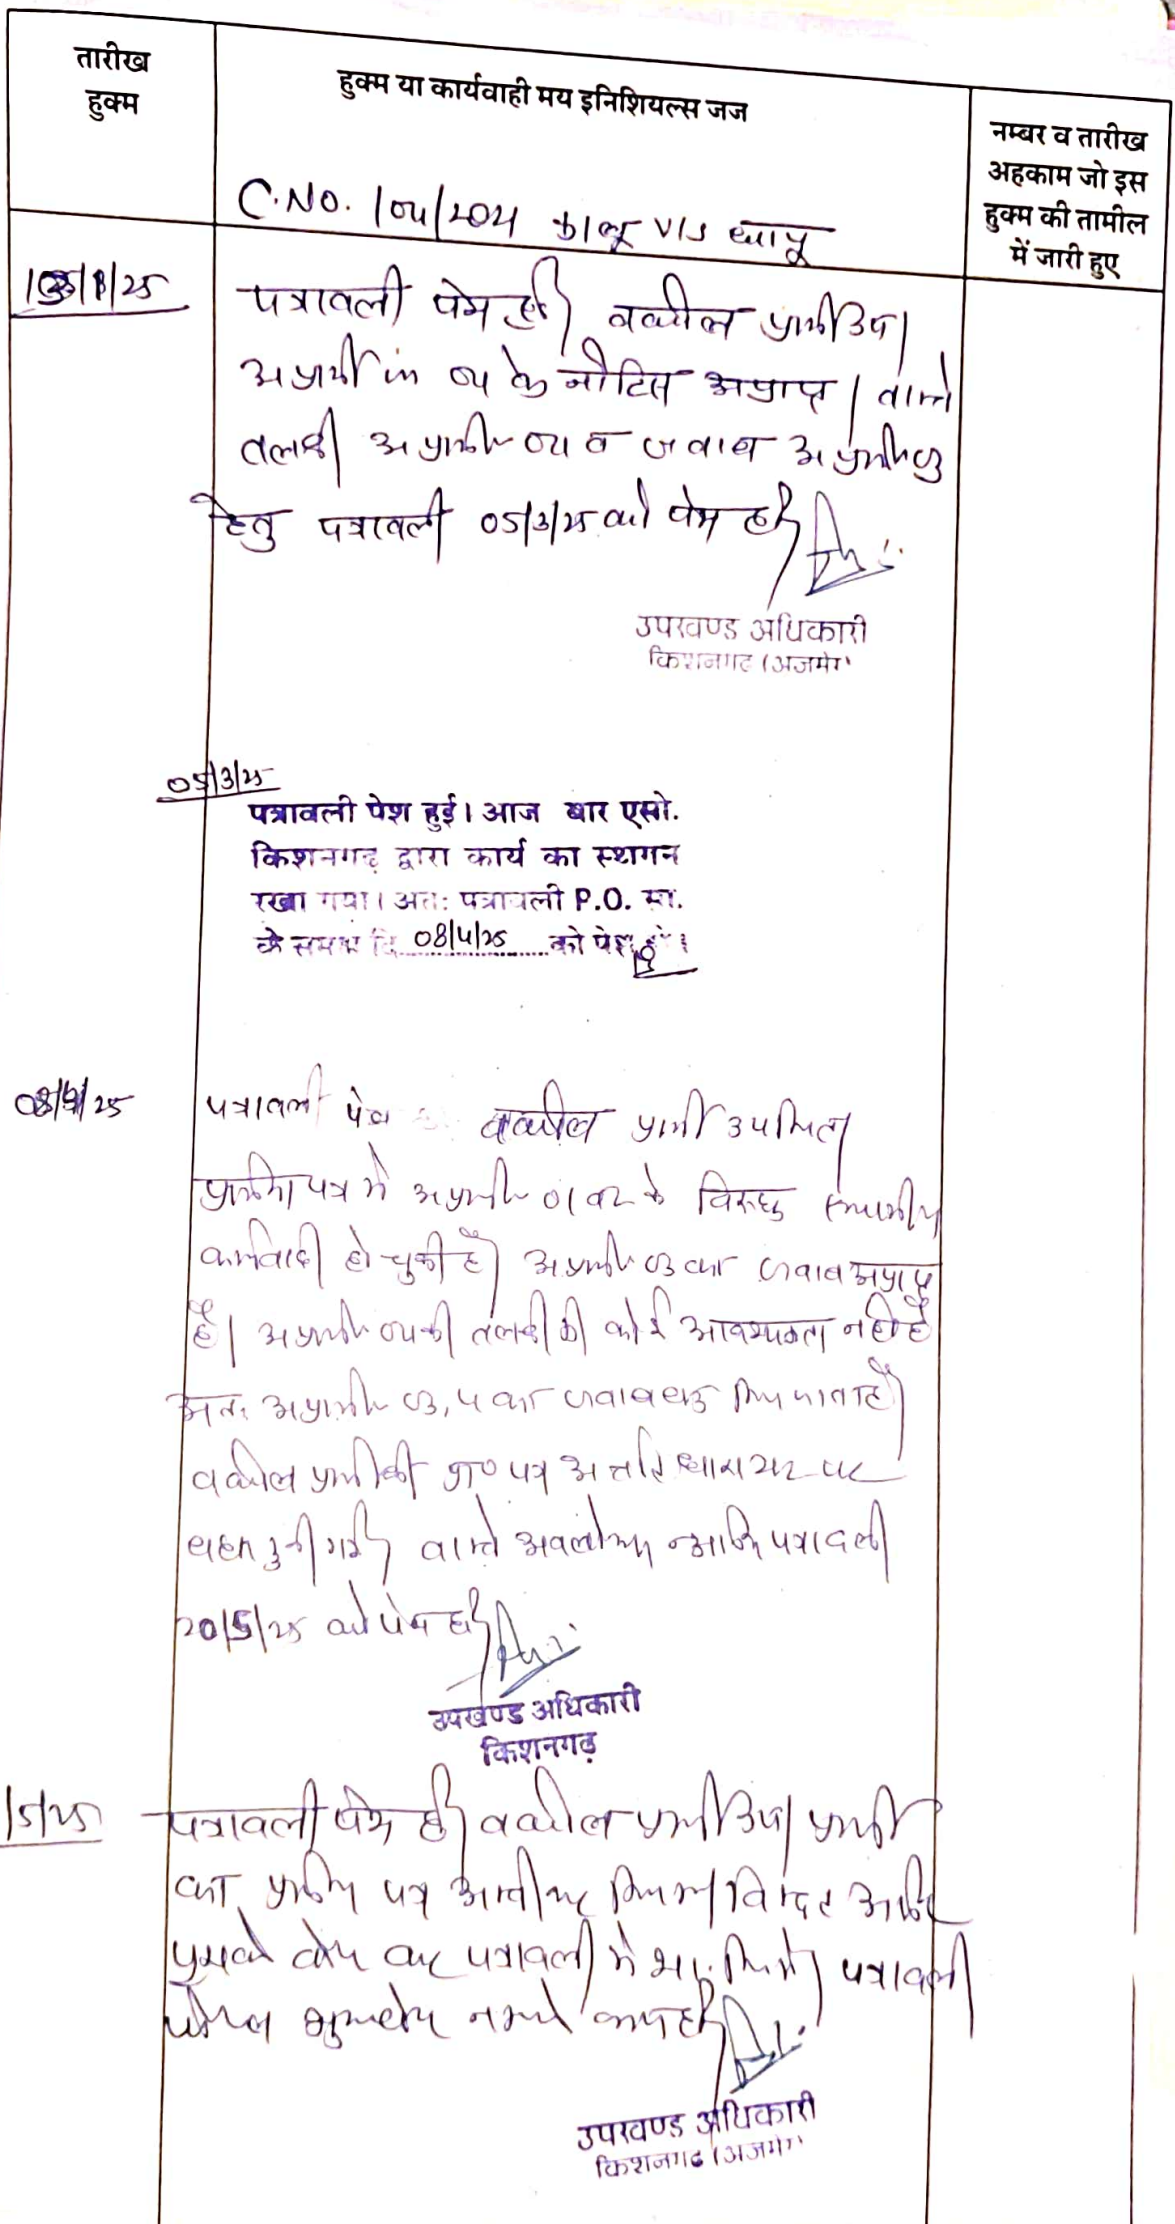 तारीख
हुक्म
हुक्म या कार्यवाही मय इनिशियल्स जज
नम्बर व तारीख
अहकाम जो इस
हुक्म की तामील
में जारी हुए
C.NO. 104/2024 कालू V/S धापू
पत्रावली पेश हुई। वकील प्रार्थी उप।
अप्रार्थी 04 के नोटिस अप्राप्त। वास्ते
तलबी अप्रार्थी 04 व जवाब अप्रार्थी 03
हेतु पत्रावली 05/3/25 को पेश हो।
उपखण्ड अधिकारी
किशनगढ (अजमेर)
05/3/25
पत्रावली पेश हुई। आज बार एसो.
किशनगढ़ द्वारा कार्य का स्थगन
रखा गया। अतः पत्रावली P.O. सा.
के समक्ष दि. 08/4/25 को पेश हो।
08/4/25
पत्रावली पेश वकील प्रार्थी उपस्थित
प्रार्थना पत्र में अप्रार्थी 01 व 02 के विरुद्ध
कार्यवाही हो चुकी है। अप्रार्थी 03 का जवाब अप्राप्त
है। अप्रार्थी 04 की तलबी की कोई आवश्यकता नहीं है
अतः अप्रार्थी 03, 04 का जवाब बन्द किया जाता है।
वकील प्रार्थी की प्रा0 पत्र धारा पर
बहस सुनी गई। वास्ते अवलोकन पत्रावली
20/5/25 को पेश हो।
उपखण्ड अधिकारी
किशनगढ़
/5/25
पत्रावली पेश हुई। वकील प्रार्थी उप। प्रार्थी
का प्रार्थना पत्र किया
पृथक से कर पत्रावली में पत्रावली
फैसल
उपखण्ड अधिकारी
किशनगढ (अजमेर)